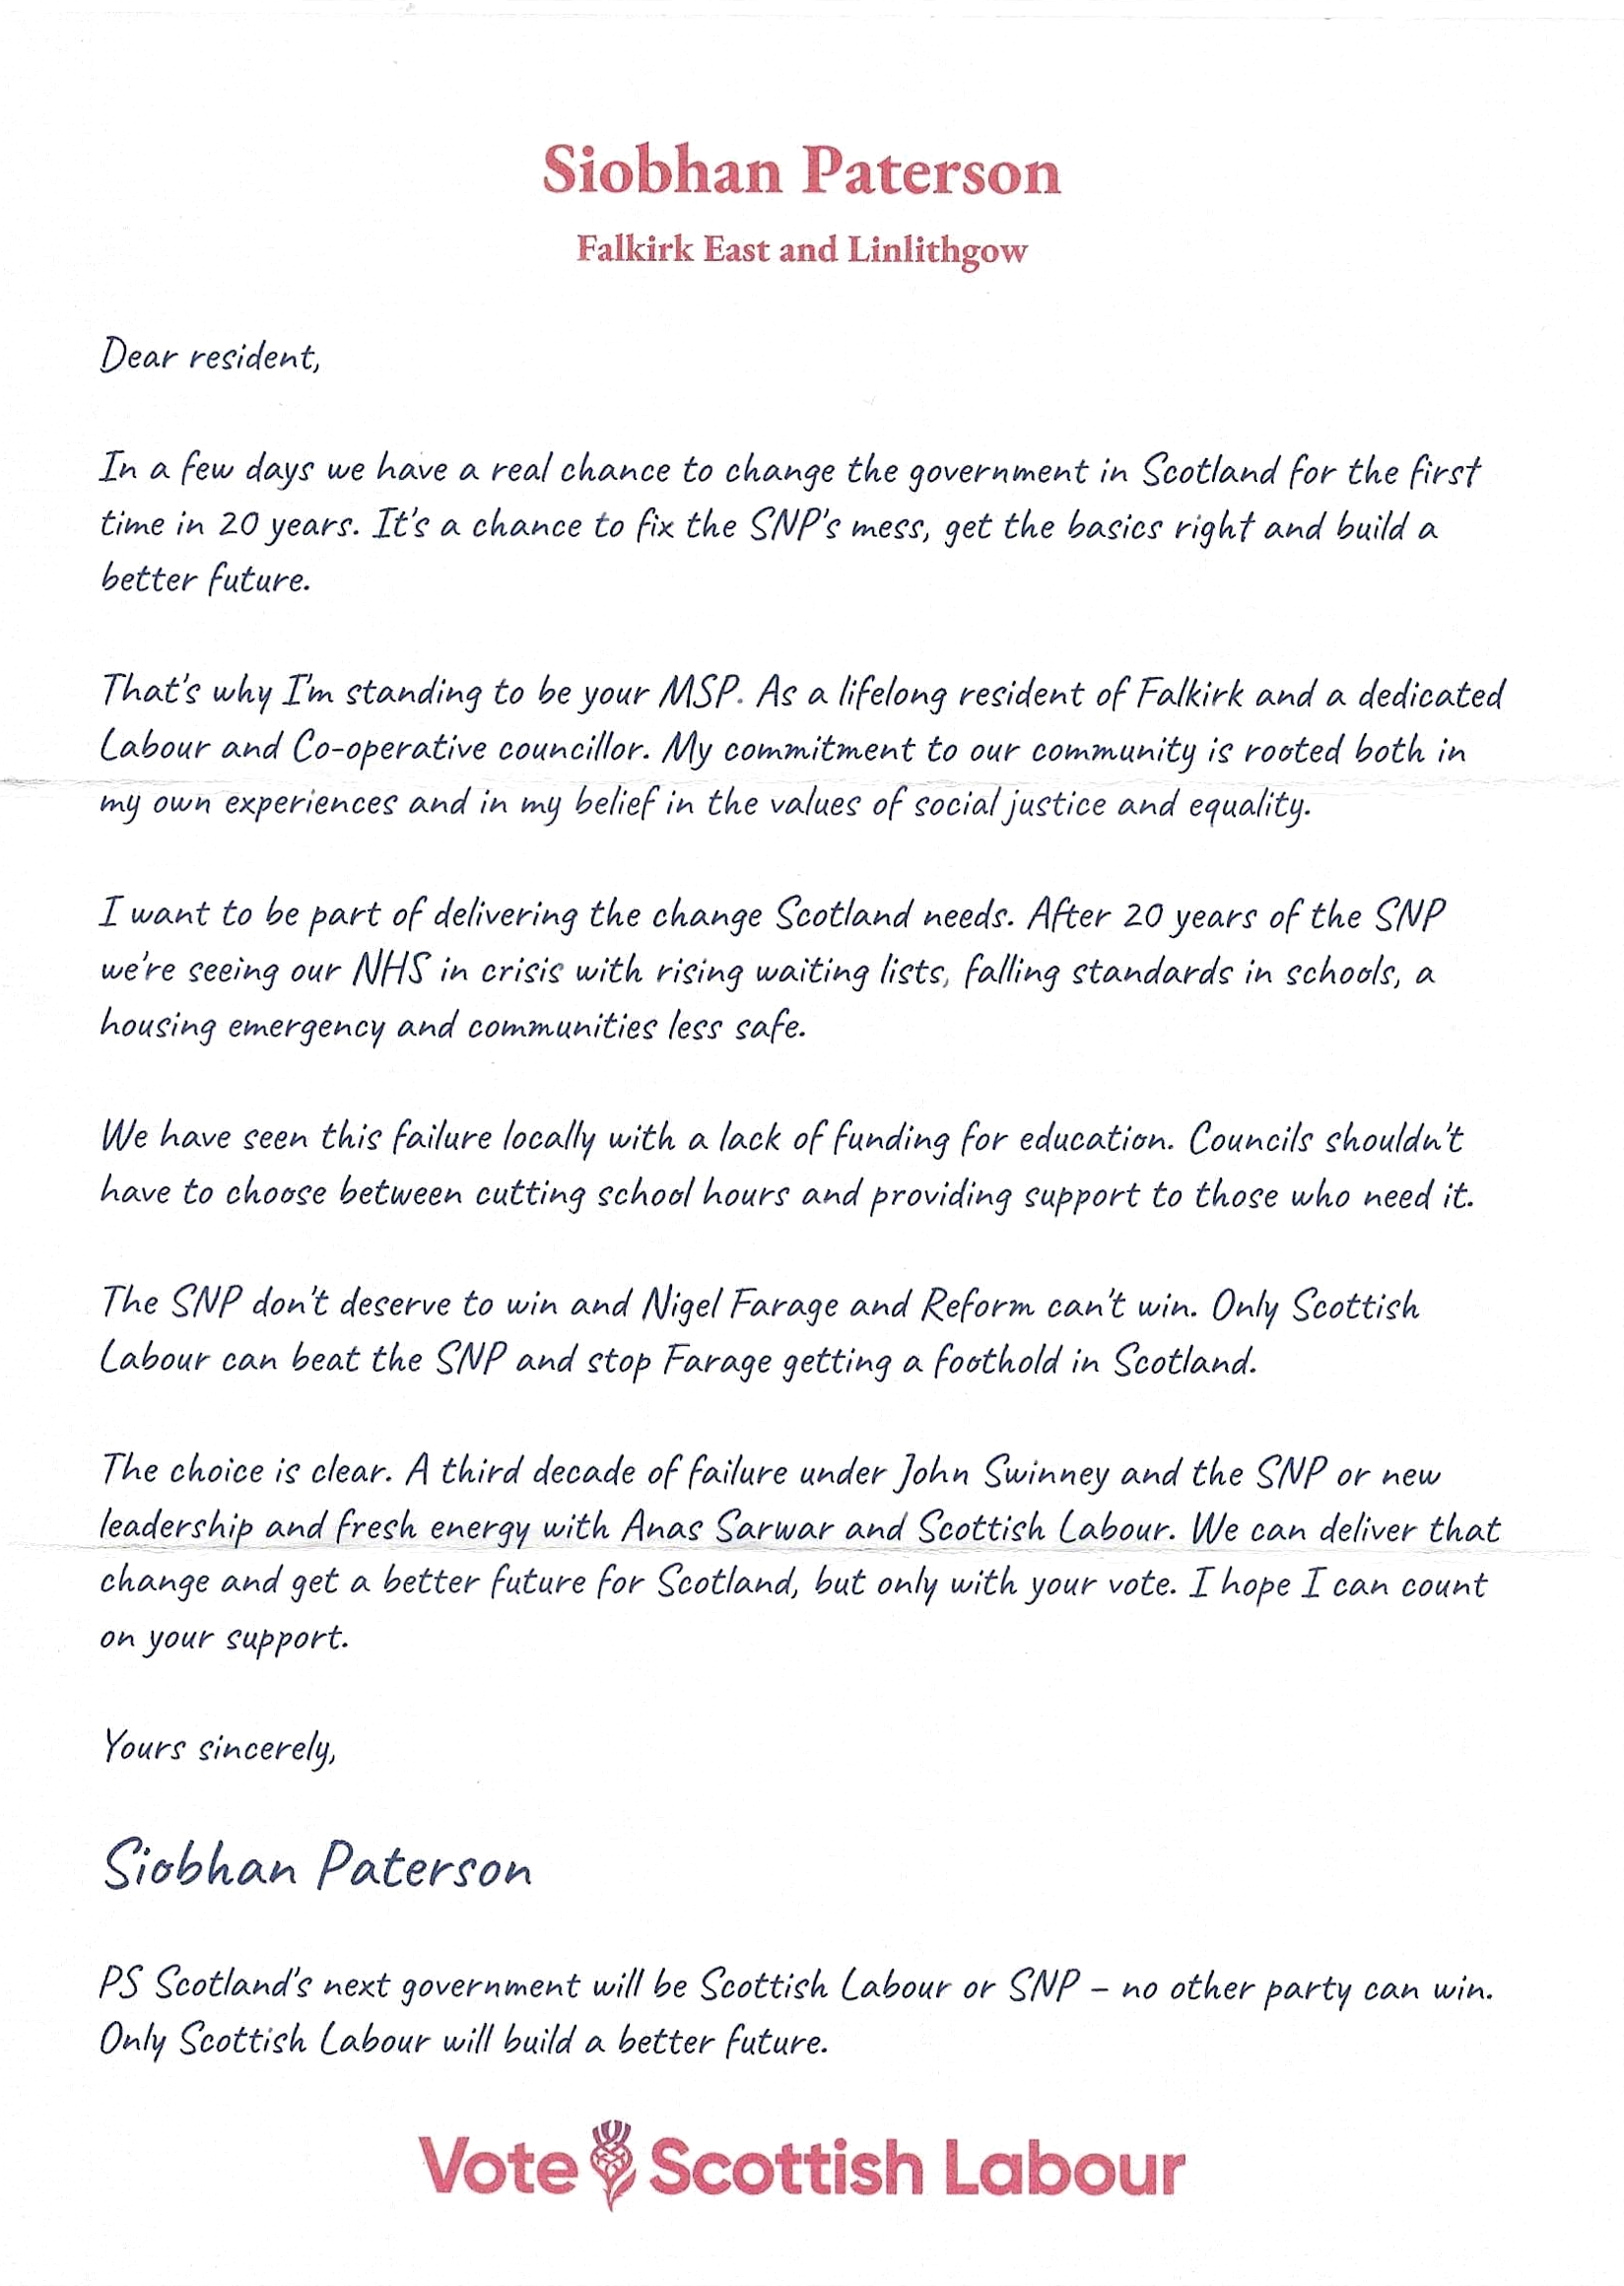 Siobhan Paterson
Falkirk East and Linlithgow
Dear resident,
In a few days we have a real chance to change the government in Scotland for the first
time in 20 years. It's a chance to fix the SNP's mess, get the basics right and build a
better future.
That's why I'm standing to be your MSP. As a lifelong resident of Falkirk and a dedicated
Labour and Co-operative councillor. My commitment to our community is rooted both in
my own experiences and in my belief in the values of social justice and equality.
I want to be part of delivering the change Scotland needs. After 20 years of the SNP
we're seeing our NHS in crisis with rising waiting lists, falling standards in schools, a
housing emergency and communities less safe.
We have seen this failure locally with a lack of funding for education. Councils shouldn't
have to choose between cutting school hours and providing support to those who need it.
The SNP don't deserve to win and Nigel Farage and Reform can't win. Only Scottish
Labour can beat the SNP and stop Farage getting a foothold in Scotland.
The choice is clear. A third decade of failure under John Swinney and the SNP or new
leadership and fresh energy with Anas Sarwar and Scottish Labour. We can deliver that
change and get a better future for Scotland, but only with your vote. I hope I can count
on your support.
Yours sincerely,
Siobhan Paterson
PS Scotland's next government will be Scottish Labour or SNP – no other party can win.
Only Scottish Labour will build a better future.
Vote Scottish Labour